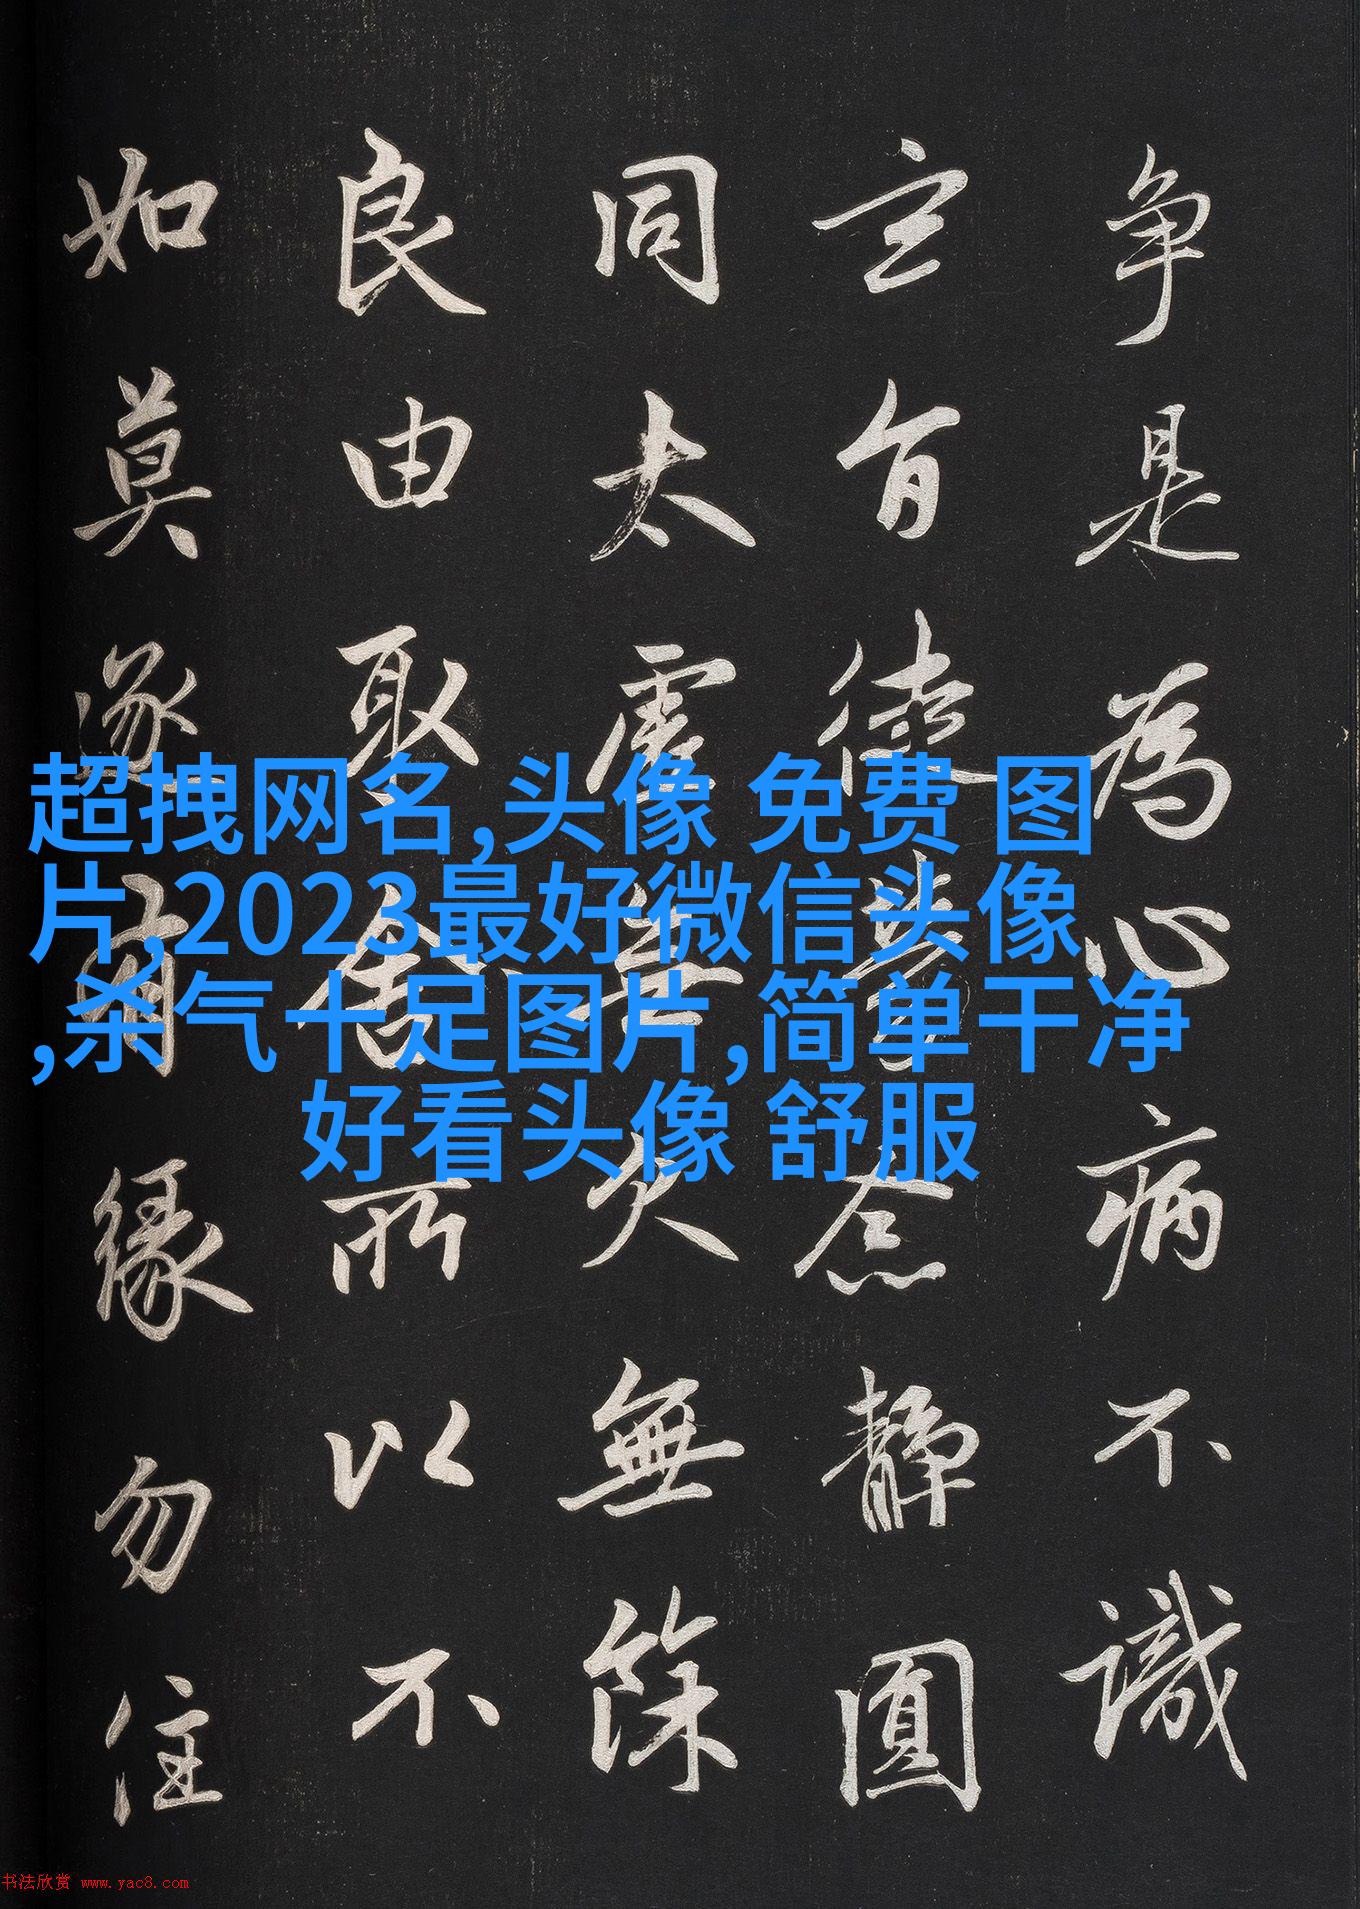 争是為心病不識
玄旨徒勞念靜圓
同太虛無欠無餘
良由取舍所以不
如莫逐有緣勿住
超拽网名,头像 免费 图
片,2023最好微信头像
,杀气十足图片,简单干净
好看头像 舒服
书法欣赏 www.yac8.com